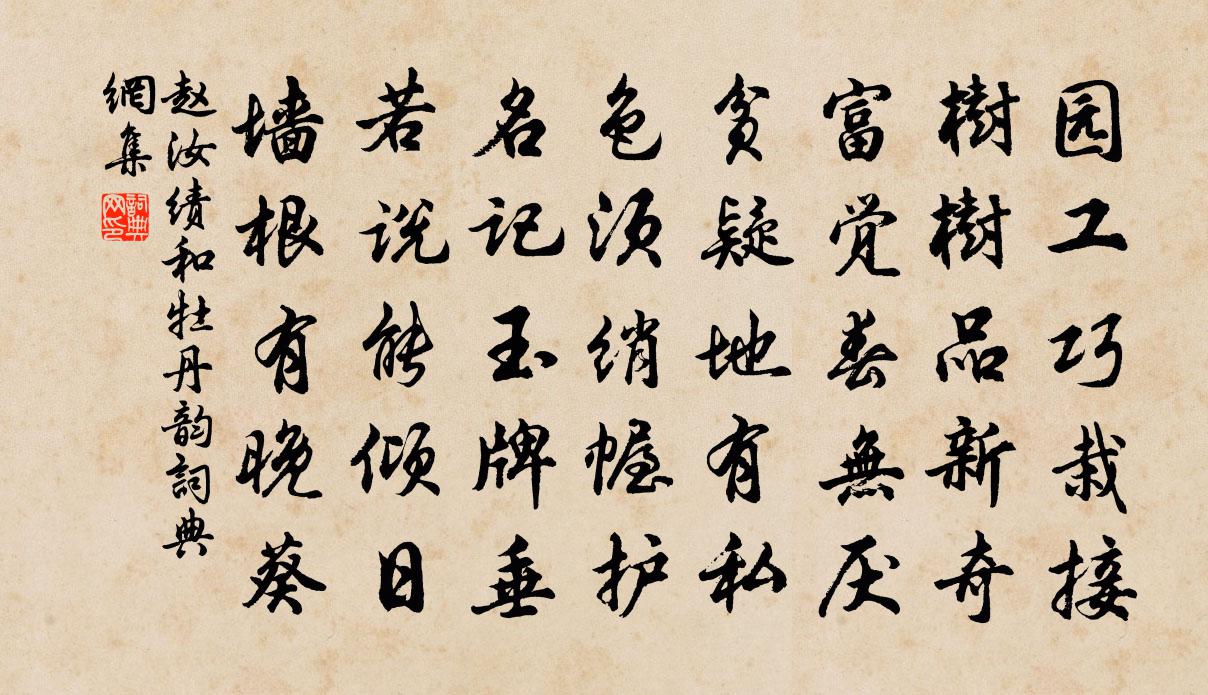 园工巧栽接
樹樹品新奇
富觉春無厌
贫疑地有私
色须绡幄护
名记玉牌垂
若说能倾日
墙根有晚葵
赵汝绩和牡丹韵詞典
網集
詞典网印